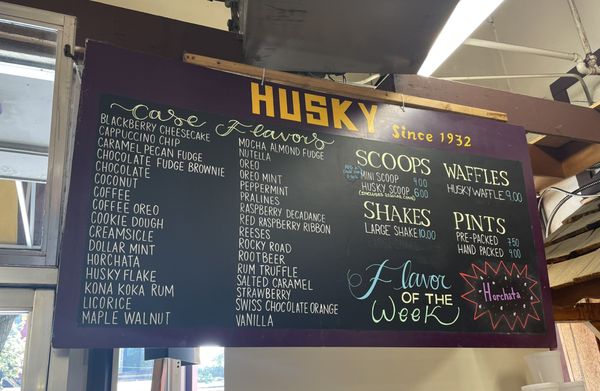 HUSKY
Since 1932
Case Flavors
BLACKBERRY CHEESECAKE
CAPPUCCINO CHIP
CARAMEL PECAN FUDGE
CHOCOLATE FUDGE BROWNIE
CHOCOLATE
COCONUT
COFFEE
COFFEE OREO
COOKIE DOUGH
CREAMSICLE
DOLLAR MINT
HORCHATA
HUSKY FLAKE
KONA KOKA RUM
LICORICE
MAPLE WALNUT
MOCHA ALMOND FUDGE
NUTELLA
OREO
OREO MINT
PEPPERMINT
PRALINES
RASPBERRY DECADANCE
RED RASPBERRY RIBBON
REESES
ROCKY ROAD
ROOTBEER
RUM TRUFFLE
SALTED CARAMEL
STRAWBERRY
SWISS CHOCOLATE ORANGE
VANILLA
SCOOPS
MINI SCOOP 4.00
HUSKY SCOOP 6.00
SHAKES
LARGE SHAKE 10.00
WAFFLES
HUSKY WAFFLE 9.00
PINTS
PRE-PACKED 7.50
HAND PACKED 9.00
Flavor
OF THE
Week
Horchata